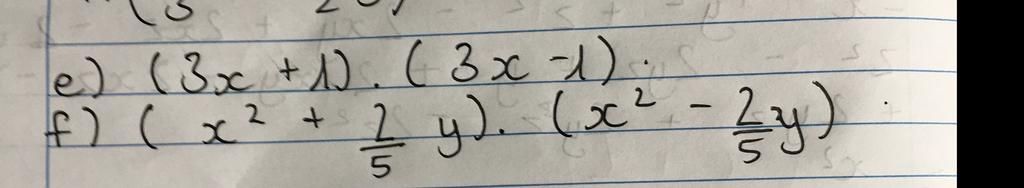 e) (3x + 1) . (3x - 1) .
f) ( x² + 2/5 y). (x² - 2/5 y) .